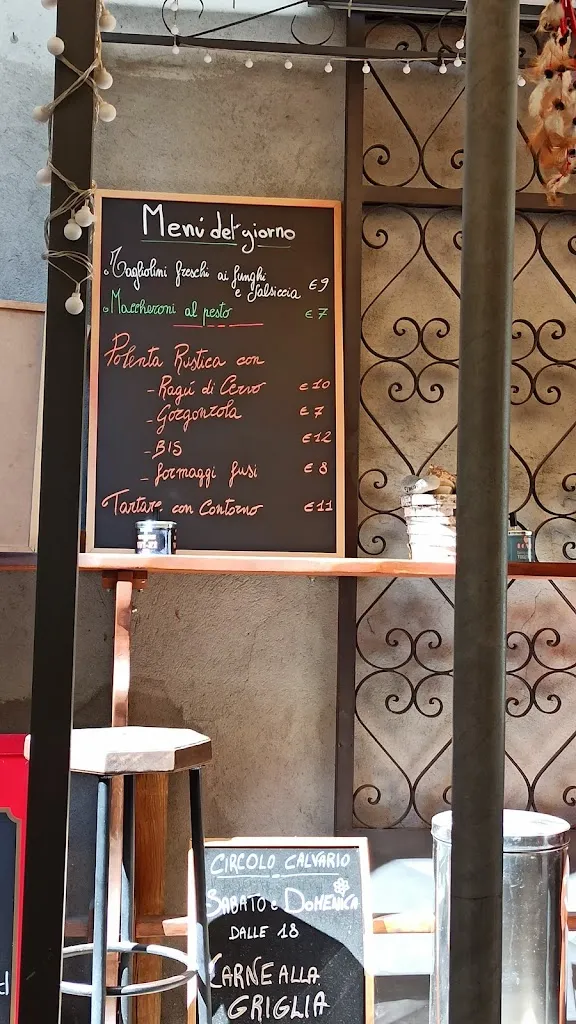 Menú del giorno
Tagliolini freschi ai funghi
e Salsiccia €9
Maccheroni al pesto €7
Polenta Rustica con
- Ragú di Cervo €10
- Gorgonzola €7
- BIS €12
- formaggi fusi €8
Tartare con Contorno €11
CIRCOLO CALVARIO
SABATO e DOMENICA
DALLE 18
CARNE ALLA
GRIGLIA